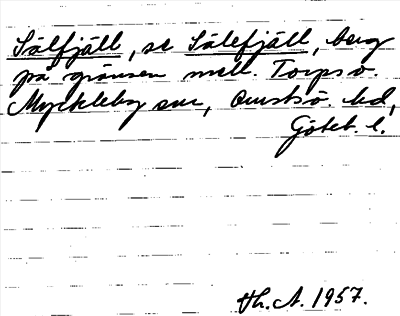 Sälfjäll, se Sälefjäll, berg
på gränsen mell. Torps o.
Myckleby snr, Orusts ö. hd,
Göteb. l.
Th. A. 1957.